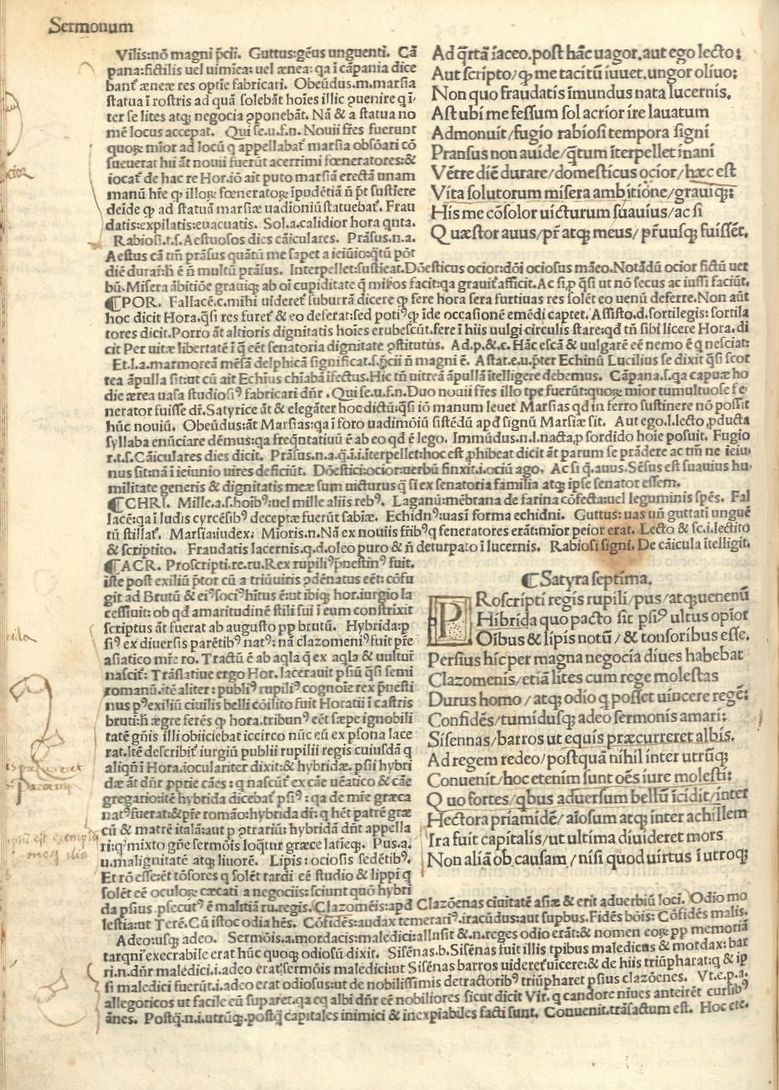 Sermonum
Vilis:nō magni p̄cii. Guttus:gēus unguenti. Cā
pana:fictilis uel uimiea: uel ænea: qa i cāpania dice
banť æneæ res optie fabricari. Obeūdus.m.marsia
statua ī rostris ad quā solebāt hoīes illic ꝓuenire q ī⸗
ter se lites atqꝫ negocia ꝓponebāt. Nā & a statua no
mē locus accepat. Qui se.u.f.n. Nouii fr̄es fuerunt
quoꝝ mīor ad locū q appellabať marsia obsōari cō
sueuerat hui āt nouii fuerūt acerrimi fœneratores:&
iocať de hac re Hor.iō ait puto marsiā erectā unam
manū hr̄e ꝙ illoꝝ fœneratoꝝ īpudētiā ñ pt̄ sustīere
deīde ꝙ ad statuā marsiæ uadioniū statuebať. Frau
datis:expilatis:euacuatis. Sol.a.calidior hora qnta.
Rabiosi.t.s. Aestuosos dies cāiculares. Prāsus.n.a.
Aestus cā tm̄ prāsus quātū me sapet a ieiūio:qtū pōt
Ad q̄rtā iaceo.post hāc uagor.aut ego lecto:
Aut scripto/qꝫ me tacitū iuuet.ungor oliuo:
Non quo fraudatis īmundus nata lucernis.
Ast ubi me fessum sol acrior ire lauatum
Admonuit/fugio rabiosi tempora signi
Pransus non auide/q̄tum īterpellet inani
Vētre diē durare/domesticus ocior/hæc est
Vita solutorum misera ambitione/grauiqꝫ:
His me cōsolor uicturum suauius/ac si
Quæstor auus/pr̄ atqꝫ meus/pr̄uusqꝫ fuissēt.
die durar̄:h ē ñ multū prāsus. Interpellet:sustieat. Dōesticus ocior:dōi ociosus māeo. Notādū ocior fictū uer
bū. Misera ābitiōe grauiqꝫ:ab oi cupiditate q misꝫos facit:qa grauiť afficit. Ac si.ꝑ qꝫsi ut nō secus ac iussi faciūt.
¶POR. Fallacē.c.mihi uidereť suburrā dicere ꝙ fere hora sera furtiuas res solēt eo uenū deferre. Non aūt
hoc dicit Hora.qꝫsi res fureť & eo deferat:sed potiꝰ ꝙ īde occasionē emēdi captet. Assisto.d.sortilegis:sortila
tores dicit.Porro āt altioris dignitatis hoīes erubescūt.fere ī hiis uulgi circulis stare:qd tñ sibi licere Hora.di
cit Per uitæ libertatē ī q eēt senatoria dignitate ꝓstitutus. Ad.p.&.c. Hāc escā & uulgarē eē nemo ē q nesciat:
Et.s.a.marmorea mēsā delphicā significat.s.pcii n̄ magni ē. Astat.e.u.ꝓter Echinū Lucilius se dixit qꝫsi scor
tea āpulla sit:ut cū ait Echius chiabā īfectus. Hic tñ uitreā āpullā ītelligere debemus. Cāpana.s.qa capuæ ho
die æræa uasa studiosiꝰ fabricari dñr. Qui se.u.f.n. Duo nouii fres illo tpe fuerūt:quoꝝ mior tumultuose fe⸗
nerator fuisse dr̄. Satyrice āt & elegāter hoc dictū:qꝫsi iō manum leuet Marsias qd in ferro sustinere nō possit
hūc nouiū. Obeūdus:āt Marsias:qa ī foro uadimōiū sistēdū apd signū Marsiæ sit. Aut ego.l.lecto,ꝓducta
syllaba enūciare dēmus:qa freqꝫntatiuū ē ab eo qd ē lego. Immūdus.n.l.nacta,p sordido hoie posuit. Fugio
r.t.s. Cāiculares dies dicit. Prāsus.n.a.q.i.i.īterpellet:hoc est,phibeat dicit āt parum se prādere ac tm̄ ne ieiu⸗
nus sit:nā ī ieiunio uires deficiūt. Dōestici:ocior:uerbū finxit.i.ociū ago. Ac si q.auus. Sēsus est suauius hu⸗
militate generis & dignitatis meæ sum uicturus q̄ si ex senatoria familia atqꝫ ipse senator essem.
¶CHRI. Mille.a.s.hoībꝰ:uel mille aliis rebꝰ. Laganū:mēbrana de farina cōfecta:uel leguminis spēs. Fal
lacē:qa ī ludis cyrcēsibꝰ deceptæ fuerūt sabiæ. Echidnꝰ:uas ī forma echidni. Guttus: uas uñ guttati unguē
tū stillať. Marsia:iudex. Mioris.n. Nā ex nouiis fr̄ibꝰ q feneratores erāt:mīor peior erat. Lecto & sc.i.lectito
& scriptito. Fraudatis lacernis.q.d.oleo puro & ñ deturpato ī lucernis. Rabiosi signi. De cāicula ītelligit.
¶ACR. Proscripti.re.ru.Rex rupiliꝰ ꝑnestinꝰ fuit.
iste post exiliū ꝑtor cū a triūuiris ꝓdēnatus eēt:cōfu
git ad Brutū & eiꝰ sociꝰ hītus ē:ut ibiqꝫ hor.iurgio la
cessiuit: ob qd amaritudinē stili sui ī eum constrīxit
scriptus āt fuerat ab augusto pp brutū. Hybrida:p
siꝰ ex diuersis parētibꝰ natꝰ: nā clazomeniꝰ fuit pr̄e
asiatico mr̄e ro. Tractū ē ab aqla q ex aqla & uulturī
nasciť. Trāslatiue ergo Hor. lacerauit psiū qꝫsi semi
romanū.ītē aliter: publiꝰ rupiliꝰ cognoīe rex ꝑnesti
nus pꝰexiliū ciuilis belli cōcilito fuit Horatii ī castris
bruti:ñ ægre ferēs ꝙ hora.tribunꝰ eēt sæpe ignobili
tatē gñis illi obiiciebat iccirco nūc eū ex psona lace
rat.ītē describit iurgiū publii rupilii regis cuiusdā q
aliqñ ī Hora.ioculariter dixit:& hybridæ.psii hybri
dæ āt dñr pprie cāes : q nascūť ex cāe uēatico & cāe
gregario:itē hybrida dicebať psiꝰ: qa de mr̄e græca
natꝰfuerat:&pr̄e romāo:hybrida dr̄: q hēt patrē græ
cū & matrē italā:aut p ꝓtrariū:hybridā dñt appella
ri:q mixto gñe sermōis loqūtur græce latieqꝫ. Pus.a.
u.malignitatē atqꝫ liuorē. Lipis: ociosis sedētibꝰ.
Et rō esse:ēt tōsores q solēt tardi eē studio & lippi q
solēt eē oculoꝝ cæcati a negociis:sciunt quō hybri
¶Satyra septima.
Proscripti regis rupili/pus/atqꝫ uenenū
Hibrida quo pacto sit psiꝰ ultus opīor
Oībus & lipis notū/& tonsoribus esse.
Persius hic per magna negocia diues habebat
Clazomenis/etiā lites cum rege molestas
Durus homo/atqꝫ odio q posset uincere regē:
Confidēs/tumidusqꝫ adeo sermonis amari:
Sisennas/barros ut equis præcurreret albis.
Ad regem redeo/postquā nihil inter utrūqꝫ
Conuenit/hoc etenim sunt oēs iure molesti:
Quo fortes/qbus aduersum bellū īcidit/inter
Hectora priamidē/aīosum atqꝫ inter achillem
Ira fuit capitalis/ut ultima diuideret mors
Non aliā ob causam/nisi quod uirtus ī utroqꝫ
da psius ꝓsecutꝰ ē malitiā ru.regis. Clazomēis:apd Clazōenas ciuitatē asiæ & erit aduerbiū loci. Odio mo
lestia:ut Terē.Cū istoc odia hēs. Cōfidēs:audax temerariꝰ.iracūdus:aut supbus. Fidēs bōis: Cōfidēs malis.
Adeo:usqꝫ adeo. Sermōis.a.mordacis:maledici:allusit & .n.reges odio erāt:& nomen eoꝝ pp memoriā
tarqni execrabile erat hūc quoqꝫ odiosū dixit. Sisēnas.b.Sisēnas fuit illis tpibus maledicus & mordax: bar
ri.n.dñr maledici.i.adeo erat sermōis maledici:ut Sisēnas barros uidereť uīcere:& de hiis triūpharat:q & ip
si maledici fuerūt.i.adeo erat odiosus:ut de nobilissimis detractoribꝰ triūpharet psius clazōenes. Vt.e.p.a.
allegoricos ut facile eū suparet.qa eq albi dñr eē nobiliores sicut dicit Vir.q candore niues anteirēt cursibꝰ
āues. Postq̄.n.i.utrūqꝫ.postq̄ capitales inimici & inexpiabiles facti sunt. Conuenit.trāsactum est. Hoc ete.